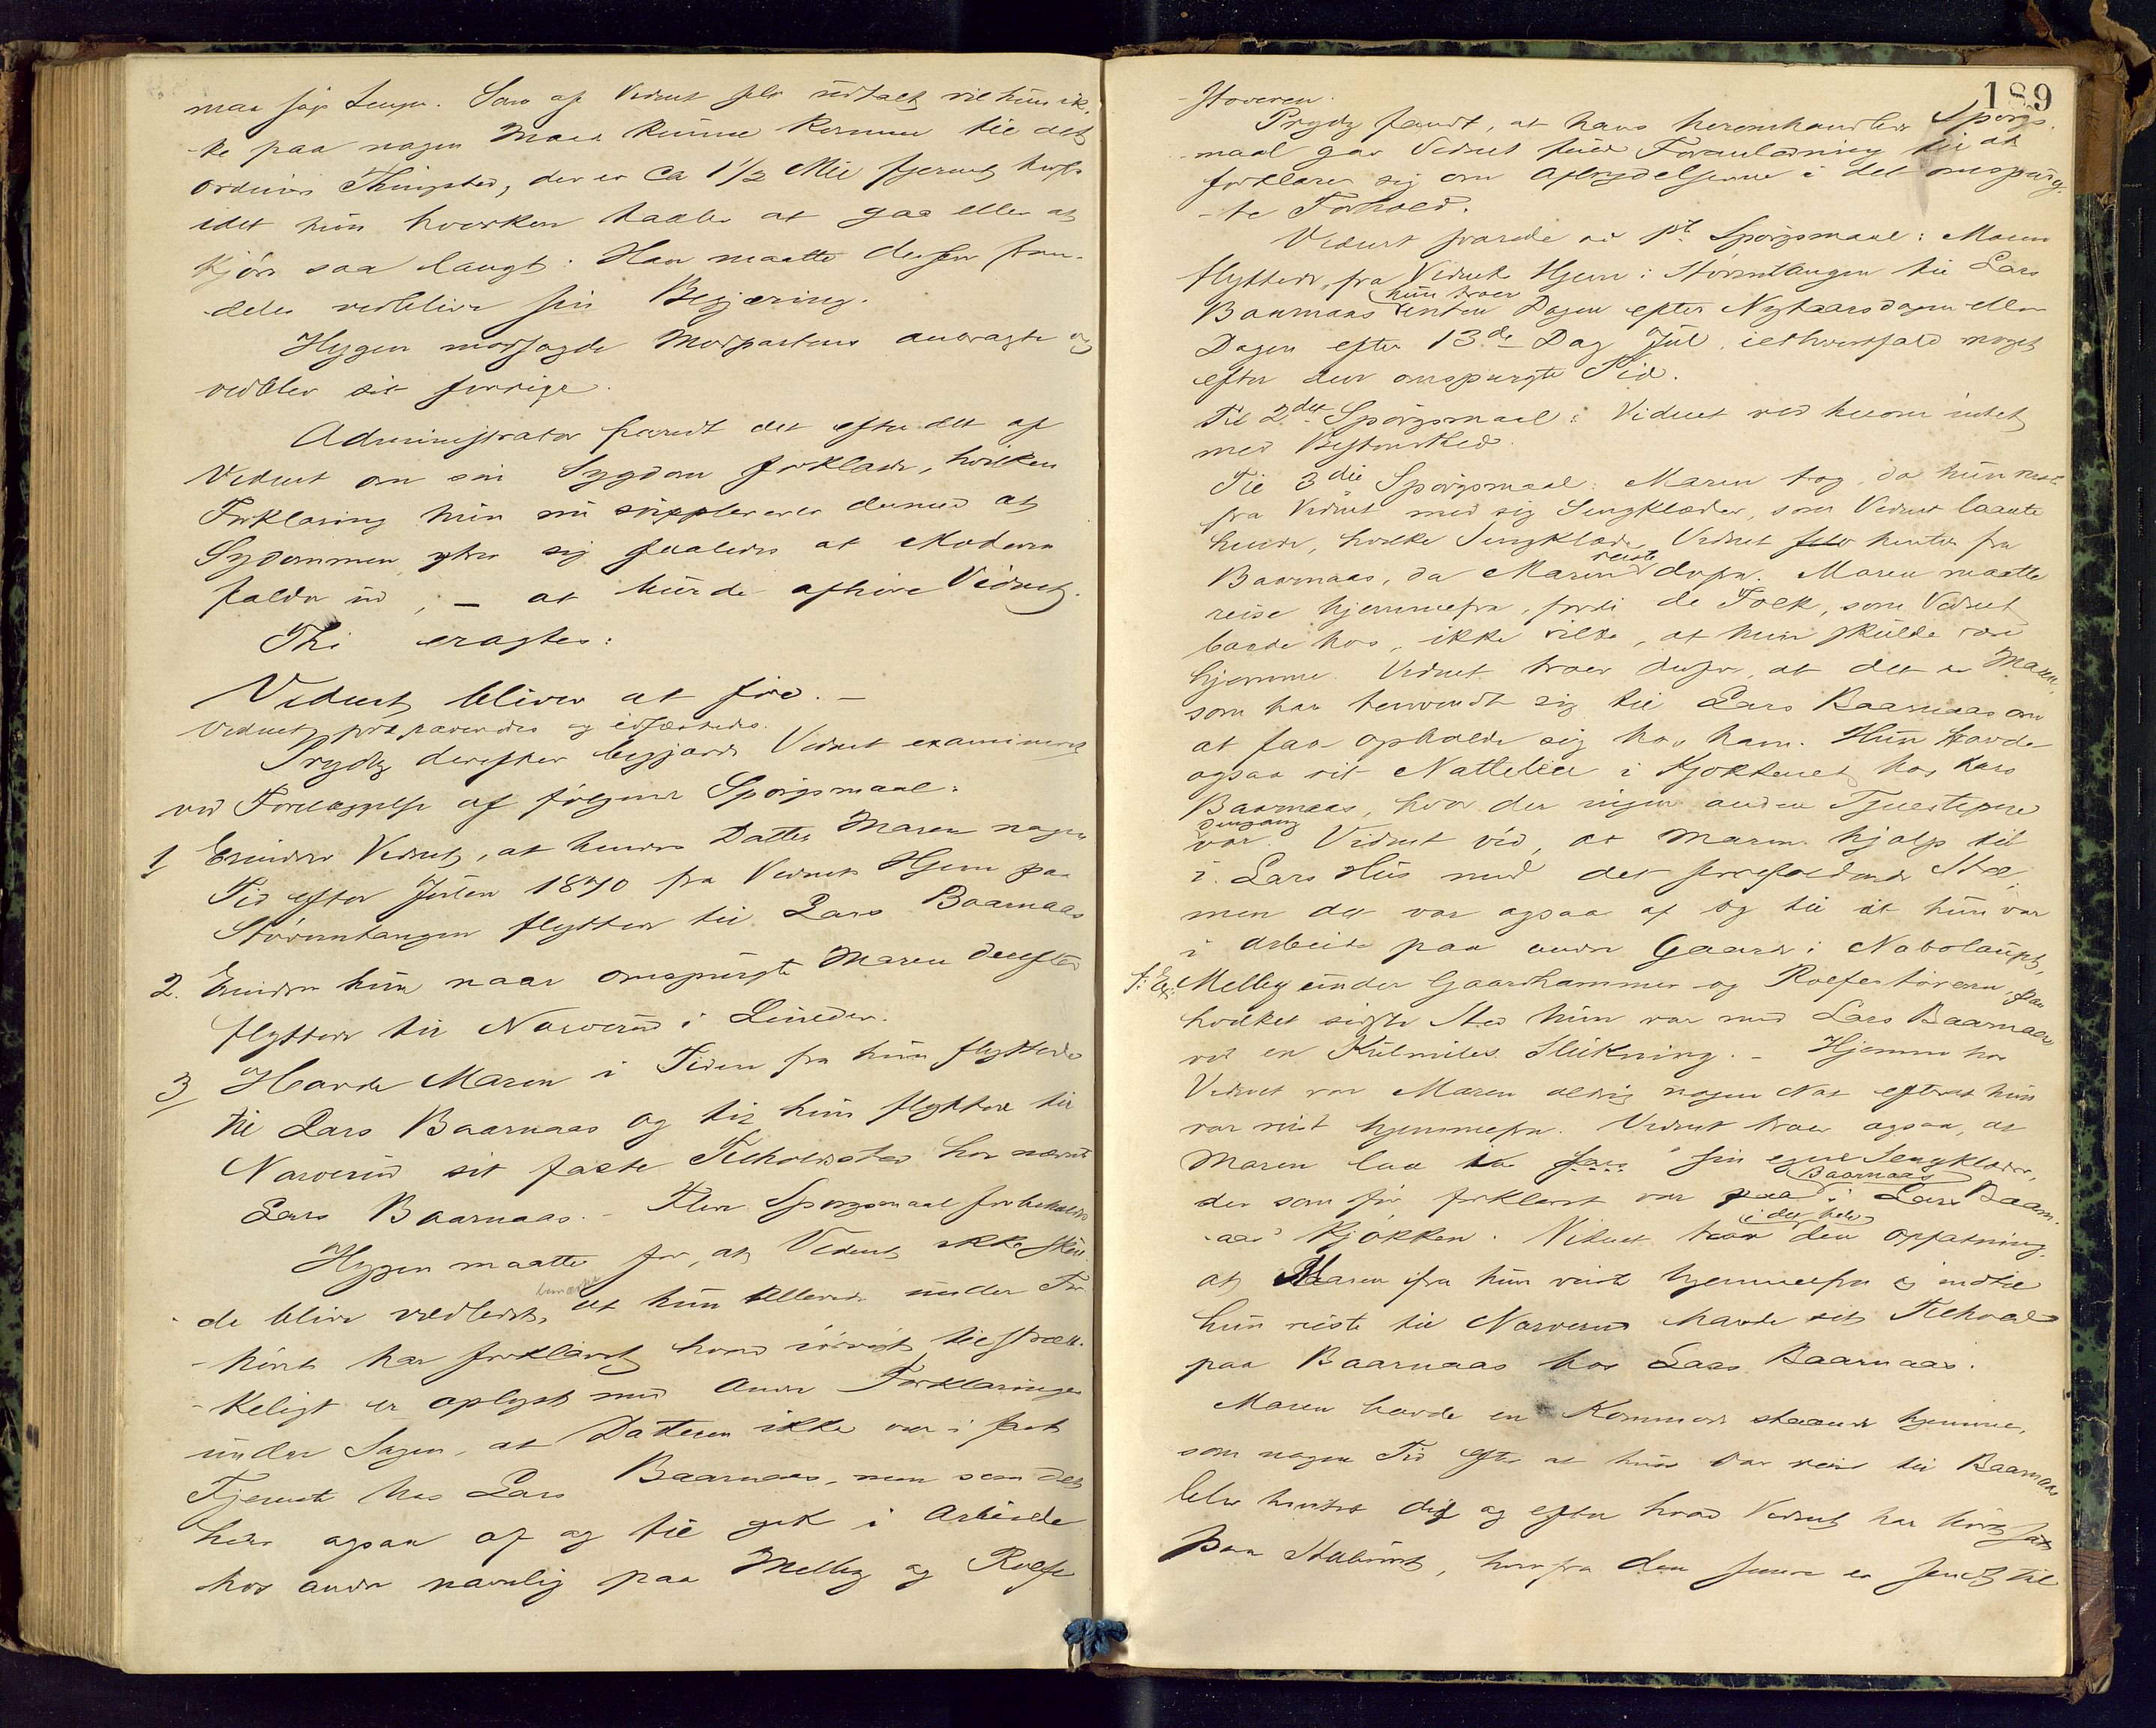 maa søge Sengen. Som af Vidnet selv udtalt vil hun ik-
ke paa nogen Maade kunne komme til det
ordinære Thingsted, der er ca 1 1/2 Mil fjernet herfra
idet hun hverken taaler at gaa eller at
kjøre saa langt. Han maatte derfor frem-
deles vedblive sin Begjæring.
Hygen modsagde Modpartens andragte og
vedblev sit forrige.
Administrator fandt det efter det af
Vidnet om sin Sygdom forklarede, hvilken
Forklaring hun nu supplerede dermed at
Sygdommen ytrer sig saaledes at Moderen
falder ud, – at burde afhøre Vidnet.
Thi eragtes:
Vidnet bliver at føre. –
Vidnet præpareredes og edfæstedes.
Prydz derefter begjærede Vidnet examineret
ved Forelæggelse af følgende Spørgsmaal:
1 Erindrer Vidnet, at hendes Datter Maren nogen
Tid efter Julen 1870 fra Vidnets Hjem paa
Størentangen flyttede til Lars Baarnaas
2. Erindrer hun naar omspurgte Maren derefter
flyttede til Narverud i Lineden.
3/ Havde Maren i Tiden fra hun flyttede
til Lars Baarnaas og til hun flyttede til
Narverud sit faste Tilholdssted hos nævnte
Lars Baarnaas. – Flere Spørgsmaal forbeholdes
Hygen maatte for, at Vidnet ikke skul-
de blive vildledet, bemærke at hun allerede under For-
høret har forklaret hvad iøvrigt tilstræk-
keligt er oplyst med andre Forklaringer
under Sagen, at Datteren ikke var i fast
Tjeneste hos Lars Baarnaas, men som det
heder ogsaa af og til gik i Arbeide
hos andre navnlig paa Melby og Rolfs
189
-støveren.
Prydz fandt, at hans heromhandlede Spørgs-
maal gav Vidnet fuld Foranledning til at
forklare sig om Afbrydelserne i det omspurg-
te Forhold.
Vidnet svarede ad 1ste Spørgsmaal: Maren
flyttede fra Vidnets Hjem i Størentangen til Lars
Baarnaas hun troer enten Dagen efter Nytaarsdagen eller
Dagen efter 13de Dag Jul, iethvertfald noget
efter den omspurgte Tid.
Til 2det Spørgsmaal: Vidnet ved herom intet
med Bestemthed.
Til 3die Spørgsmaal: Maren tog, da hun reiste
fra Vidnet med sig Sengklæder, som Vidnet laante
hende, hvilke Sengklæder Vidnet selv hentede fra
Baarnaas, da Maren reiste derfra. Maren maatte
reise hjemmefra, fordi de Folk, som Vidnet
boede hos, ikke vilde, at hun skulde være
hjemme. Vidnet troer derfor, at det er Maren,
som har henvendt sig til Lars Baarnaas om
at faa opholde sig hos ham. Hun havde
ogsaa sit Natteleie i Kjøkkenet hos Lars
Baarnaas, hvor der ingen anden Tjenestepige
dengang var. Vidnet véd, at Maren hjalp til
i Lars Hus med det forefaldende Stel,
men det var ogsaa af og til at hun var
i Arbeide paa andre Gaarde i Nabolauget,
f: Ex: Melby under Gaardhammer og Rolfsstøveren, paa
hvilket sidste Sted hun var med Lars Baarnaas
ved en Kulmiles Slukning. – Hjemme hos
Vidnet var Maren aldrig nogen Nat efterat hun
var reist hjemmefra. Vidnet troer ogsaa, at
Maren laa i sine egne Sengklæder,
der som før forklaret var paa Baarnaas i Lars Baarn-
aas' Kjøkken. Vidnet har i det hele den Opfatning,
at Maren ifra hun reiste hjemmefra og indtil
hun reiste til Narverud havde sit Tilhold
paa Baarnaas hos Lars Baarnaas.
Maren havde en Kommode staaende hjemme,
som nogen Tid efter at hun var reist til Baarnaas
blev hentet did og efter hvad Vidnet har hørt sat
paa Stabburet, hvorfra den senere er sendt til